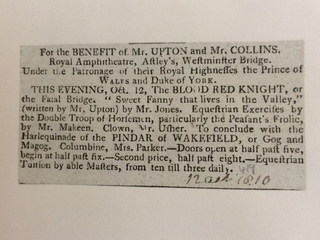 For the BENEFIT of Mr. UPTON and Mr. COLLINS.
Royal Amphitheatre, Aſtley's, Weſtminſter Bridge.
Under the Patronage of their Royal Highneſſes the Prince of
WALES and Duke of YORK.
THIS EVENING, Oct. 12, The BLOOD RED KNIGHT, or
the Fatal Bridge. "Sweet Fanny that lives in the Valley,"
(written by Mr. Upton) by Mr. Jones. Equeſtrian Exerciſes by
the Double Troop of Horſemen, particularly the Peaſant's Frolic,
by Mr. Makeen. Clown, Mr. Uſher. To conclude with the
Harlequinade of the PINDAR of WAKEFIELD, or Gog and
Magog. Columbine, Mrs. Parker.—Doors open at half paſt five,
begin at half paſt ſix.—Second price, half paſt eight.—Equeſtrian
Tuition by able Maſters, from ten till three daily.
12 Oct 1810